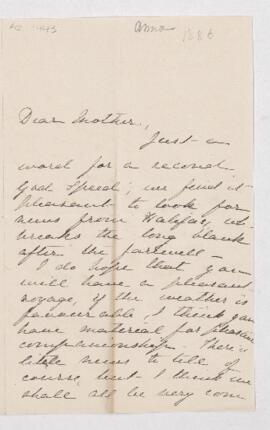 Anna 1886
Dear Mother,
Just a
word for a second
God Speed; we find it
pleasant to look for
news from Halifax it
breaks the long blank
after the farewell —
I do hope that you
will have a pleasant
voyage, if the weather is
favourable, I think you
have material for pleasant
companionship. There's
little news to tell of
course, but I think we
shall all be very com